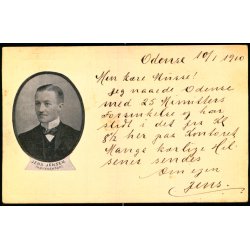 Odense 10/1 1910
Min kære Musse!
Jeg naaede Odense
med 25 Minutters
Forsinkelse og har
siddet i det fra Kl
8½ her paa Kontoret
Mange kærlige Hil
sener sendes
Din egen
Jens.
JENS JENSEN